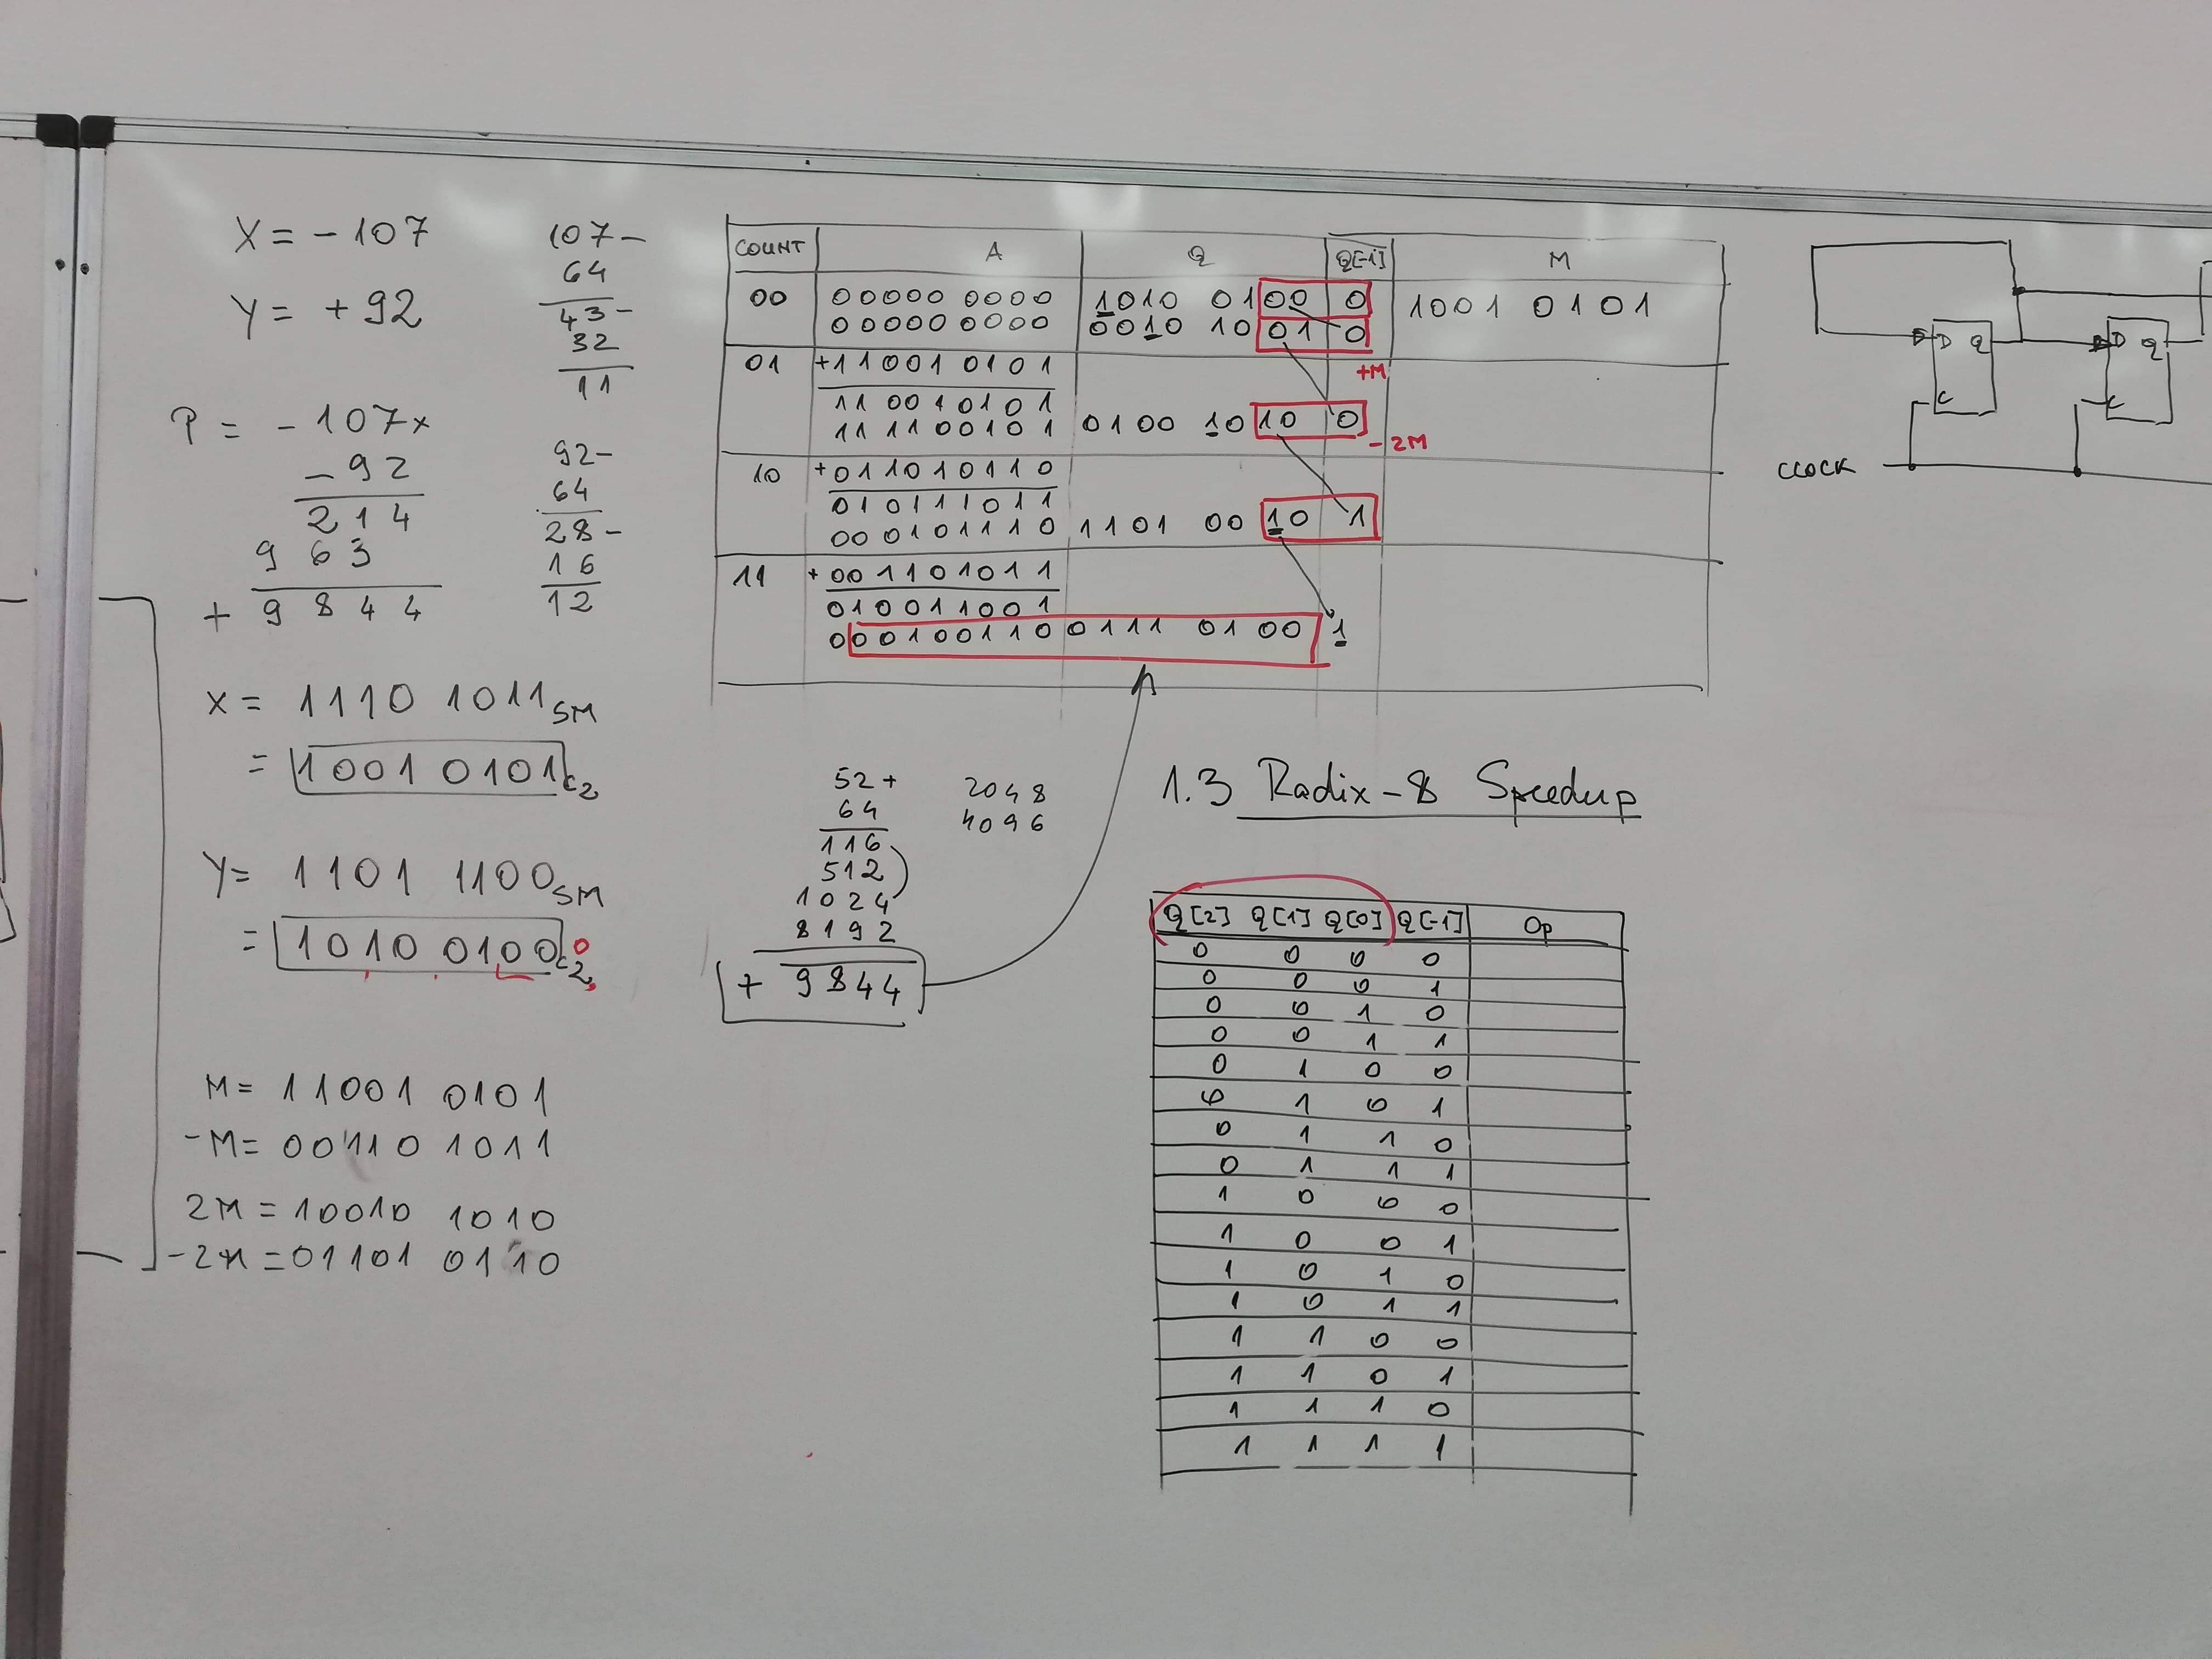 X = - 107
Y = + 92
107 -
64
43 -
32
11
P = - 107 x
- 92
2 1 4
9 6 3
+ 9 8 4 4
92 -
64
28 -
16
12
X = 1110 1011 SM
= 1001 0101 C2
Y = 1101 1100 SM
= 1010 0100 C2 0
M = 11001 0101
-M = 00110 1011
2M = 10010 1010
-2M = 01101 0110
COUNT A Q Q[-1] M
00 00000 0000 1010 0100 0 1001 0101
00000 0000 0010 1001 0
01 +11001 0101 +M
11 0010101
11 1100101 0100 1010 0
-2M
10 +011010110
010111011
000101110 1101 0010 1
11 +001101011
010011001
0000100110 0111 0100 1
52 +
64
116
512
1024
8192
+ 9844
2048
4096
1.3 Radix-8 Speedup
Q[2] Q[1] Q[0] Q[-1] Op
0 0 0 0
0 0 0 1
0 0 1 0
0 0 1 1
0 1 0 0
0 1 0 1
0 1 1 0
0 1 1 1
1 0 0 0
1 0 0 1
1 0 1 0
1 0 1 1
1 1 0 0
1 1 0 1
1 1 1 0
1 1 1 1
D Q
C
D Q
C
CLOCK